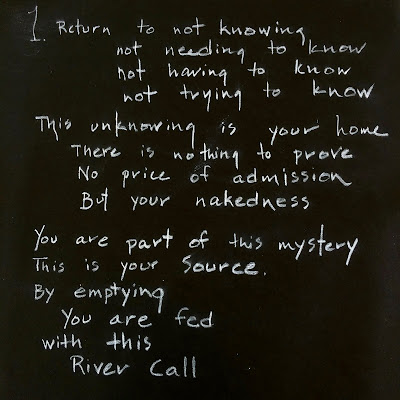 1. Return to not knowing
not needing to know
not having to know
not trying to know
This unknowing is your home
There is nothing to prove
No price of admission
But your nakedness
You are part of this mystery
This is your Source.
By emptying
You are fed
with this
River Call